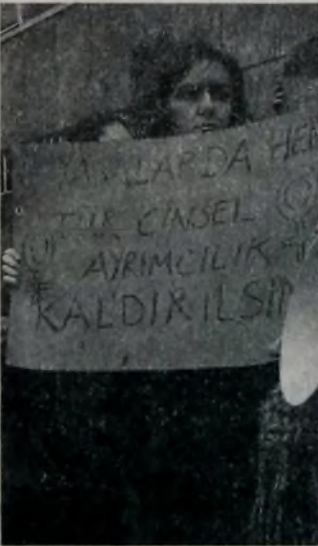 YASALARDA HER
TÜR CİNSEL
AYRIMCILIK
KALDIRILSIN